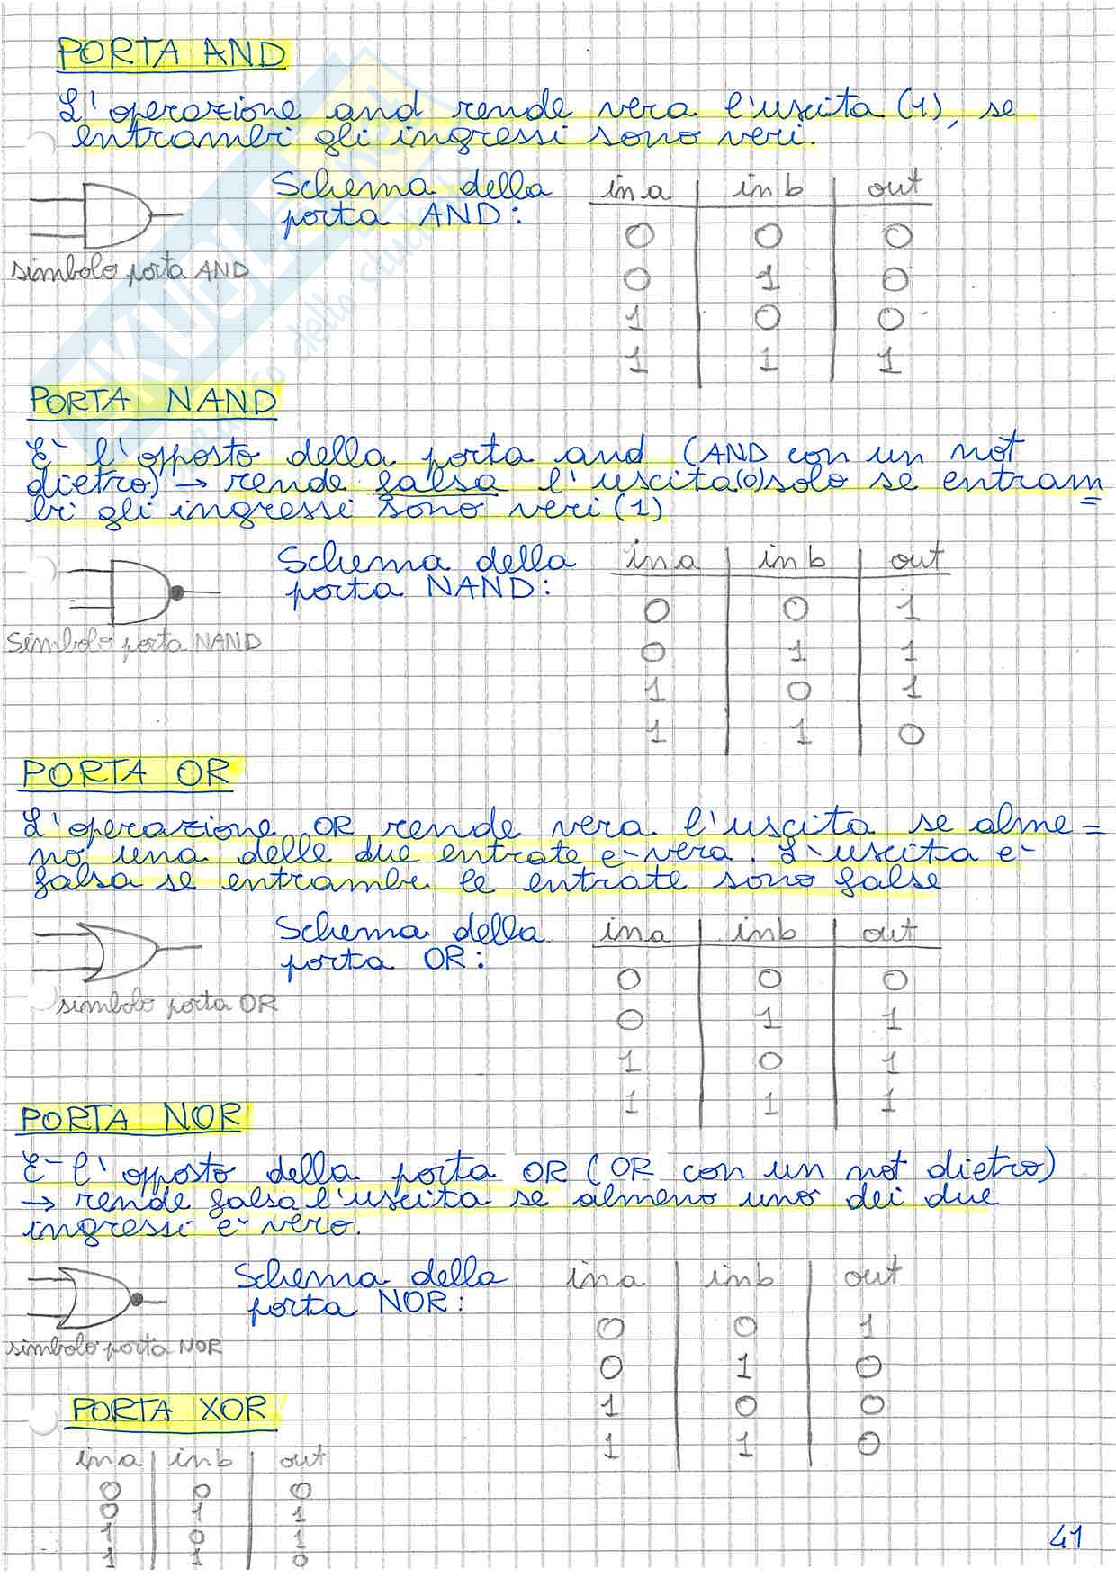 PORTA AND
L'operazione and rende vera l'uscita (1), se
entrambi gli ingressi sono veri.
Schema della
porta AND:
simbolo porta AND
in a | in b | out
0 0 0
0 1 0
1 0 0
1 1 1
PORTA NAND
E' l'opposto della porta and (AND con un not
dietro) → rende falsa l'uscita (0) solo se entram=
bi gli ingressi sono veri (1)
Schema della
porta NAND:
simbolo porta NAND
in a | in b | out
0 0 1
0 1 1
1 0 1
1 1 0
PORTA OR
L'operazione OR rende vera l'uscita se alme=
no una delle due entrate e- vera. L'uscita e-
falsa se entrambe le entrate sono false
Schema della
porta OR:
simbolo porta OR
in a | in b | out
0 0 0
0 1 1
1 0 1
1 1 1
PORTA NOR
E- l'opposto della porta OR (OR con un not dietro)
→ rende falsa l'uscita se almeno uno dei due
ingressi e- vero.
Schema della
porta NOR:
simbolo porta NOR
in a | in b | out
0 0 1
0 1 0
1 0 0
1 1 0
PORTA XOR
in a | in b | out
0 0 0
0 1 1
1 0 1
1 1 0
41